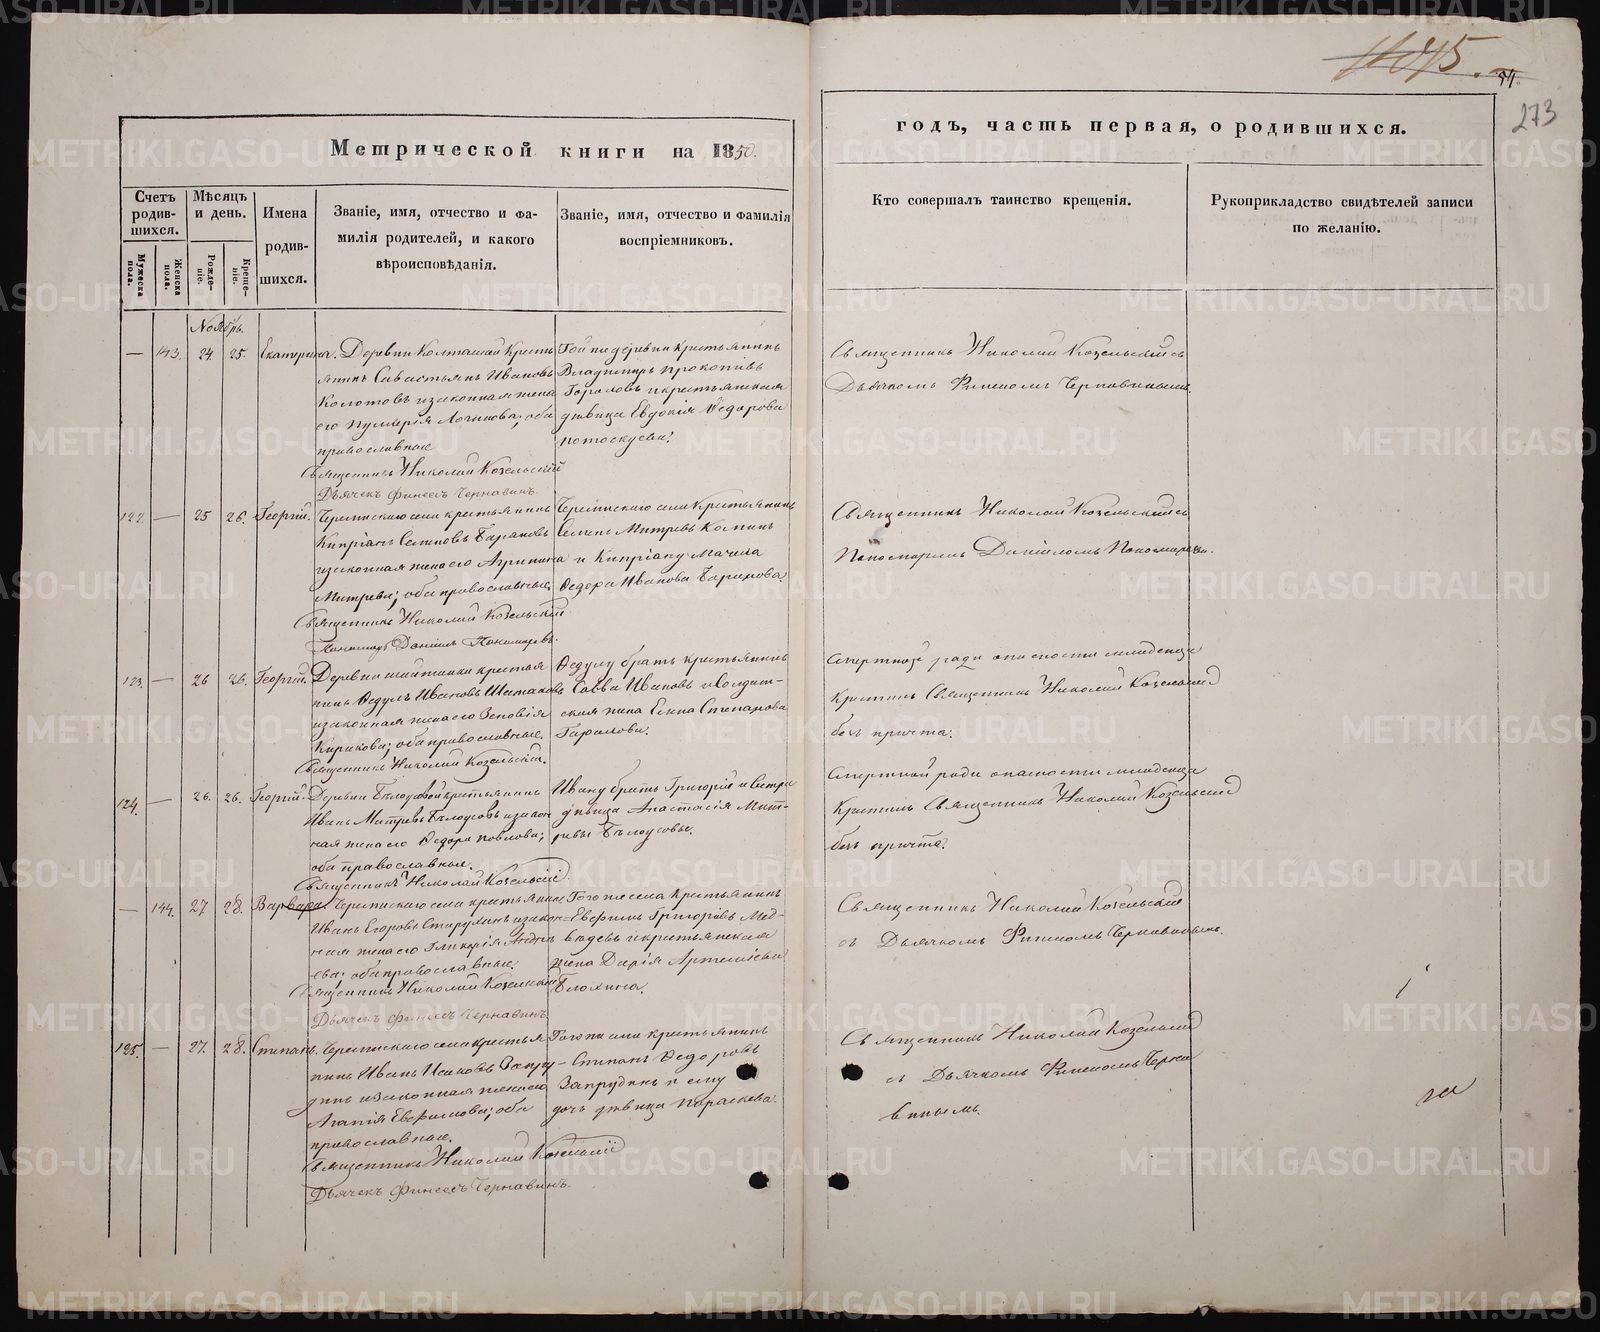 273
Метрической книги на 1850.
годъ, часть первая, о родившихся.
Счетъ родив-
шихся.
Мужеска пола.
Женска пола.
Мѣсяцъ и день.
Рожде-
ніе.
Креще-
ніе.
Имена родив-
шихся.
Званіе, имя, отчество и фа-
милія родителей, и какого
вѣроисповѣданія.
Званіе, имя, отчество и фамилія
воспріемниковъ.
Кто совершалъ таинство крещенія.
Рукоприкладство свидѣтелей записи
по желанію.
Ноябрь.
— 143. 24. 25. Екатерина.
Деревни Колташей Кресть
янинъ Савастьянъ Ивановъ
Колотовъ и законная жена
его Логинова; оба
православные
Священникъ Николай Козельскій
Дьячекъ Финеесъ Чернавинъ.
Той же деревни крестьянинъ
Владимиръ Прокопьевъ
и крестьянская
дѣвица Евдокія Ѳедорова
Потоскуева.
Священникъ Николай Козельскій съ
Дьячкомъ Финеесомъ Чернавинымъ.
122. — 25 26. Георгій.
села крестьянинъ
Кипріанъ Семеновъ
и законная жена его Агрипина
Митрева; оба православные.
Священникъ Николай Козельскій
Пономарь Даніилъ Пономаревъ.
села Крестьянинъ
Семенъ Митревъ Коминъ
и Кипріану мачиха
Ѳедора Иванова
Священникъ Николай Козельскій съ
Пономаремъ Даніиломъ
123. — 26 26. Георгій.
Деревни крестья
нинъ Ѳедулъ Ивановъ
и законная жена его Зеновія
Кирикова; оба православные.
Священникъ Николай Козельскій.
Ѳедулу братъ крестьянинъ
Савва Ивановъ и солдат-
ская жена Елена Степанова
Смертной ради опасности младенца
крестилъ Священникъ Николай Козельскій
безъ причта.
124. — 26. 26. Георгій.
Деревни Бѣлоусовой крестьянинъ
Иванъ Митревъ Бѣлоусовъ и закон
ная жена его Ѳедора Павлова;
оба православные.
Священникъ Николай Козельскій.
Ивану братъ Григорій и сестра
дѣвица Анастасія Мит-
ревы Бѣлоусовы.
Смертной ради опасности младенца
Крестилъ Священникъ Николай Козельскій
безъ причта.
— 144. 27 28. Варвара.
села крестьянинъ
Иванъ Егоровъ и закон=
ная жена его Гликерія Андре
ева; оба православные.
Священникъ Николай Козельскій
Дьячекъ Финеесъ Чернавинъ
Того же села Крестьянинъ
Евфимъ Григорьевъ Мед-
вѣдевъ и крестьянская
жена Дарія Артемьева
Блохина.
Священникъ Николай Козельскій
съ Дьячкомъ Финеесомъ Чернавинымъ.
125. — 27. 28. Стипанъ.
села крестья
нинъ Иванъ Исаковъ Запру-
динъ и законная жена его
Агапія Евфимова; оба
православные.
Священникъ Николай Козельскій
Дьячекъ Финеесъ Чернавинъ.
Того же села крестьянинъ
Стипанъ Ѳедоровъ
Запрудинъ и ему
дочь дѣвица Параскева.
Священникъ Николай Козельскій
съ Дьячкомъ Финеесомъ Черна
винымъ.
METRIKI.GASO-URAL.RU